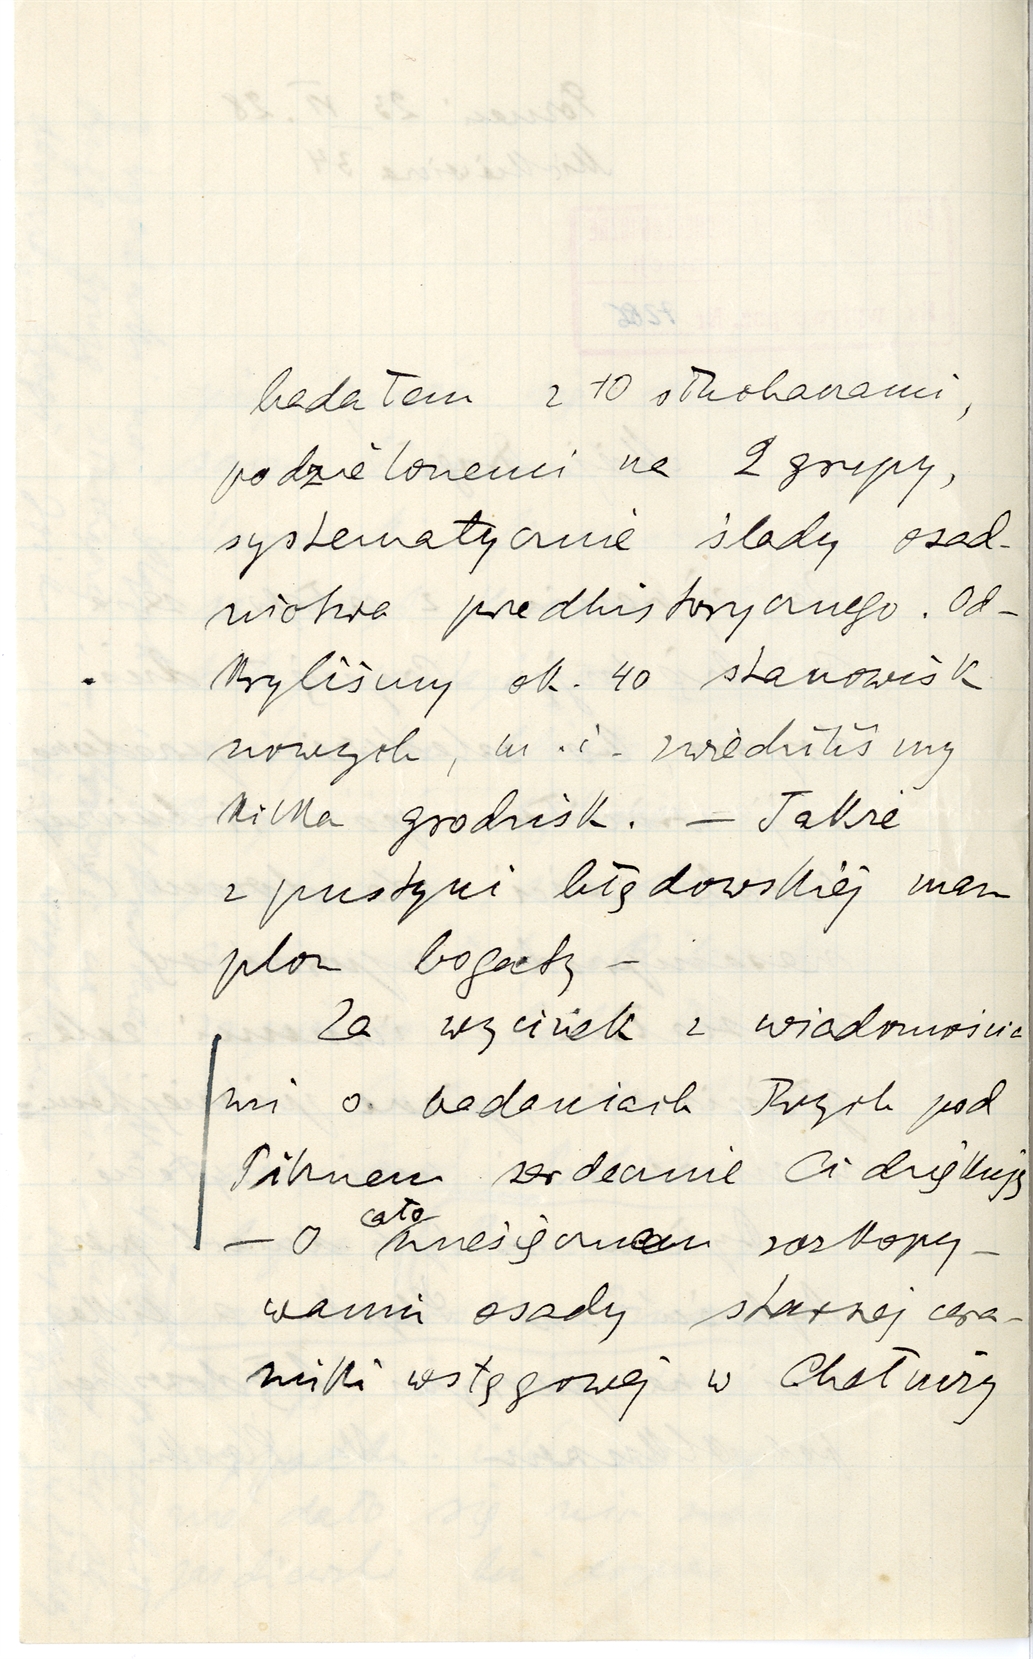 badałem z 10 słuchaczami,
podzielonemi na 2 grupy,
systematycznie ślady osad-
nictwa predhistorycznego. Od-
kryliśmy ok. 40 stanowisk
nowych, m. i. zwiedziliśmy
kilka grodzisk. — Także
z pustyni błędowskiej mam
plon bogaty —
Za wycinek z wiadomościa
mi o badaniach Twych pod
serdecznie Ci dziękuję
— O cało miesięcznem rozkopy-
waniu osady starszej cera-
miki wstęgowej w Chełmży